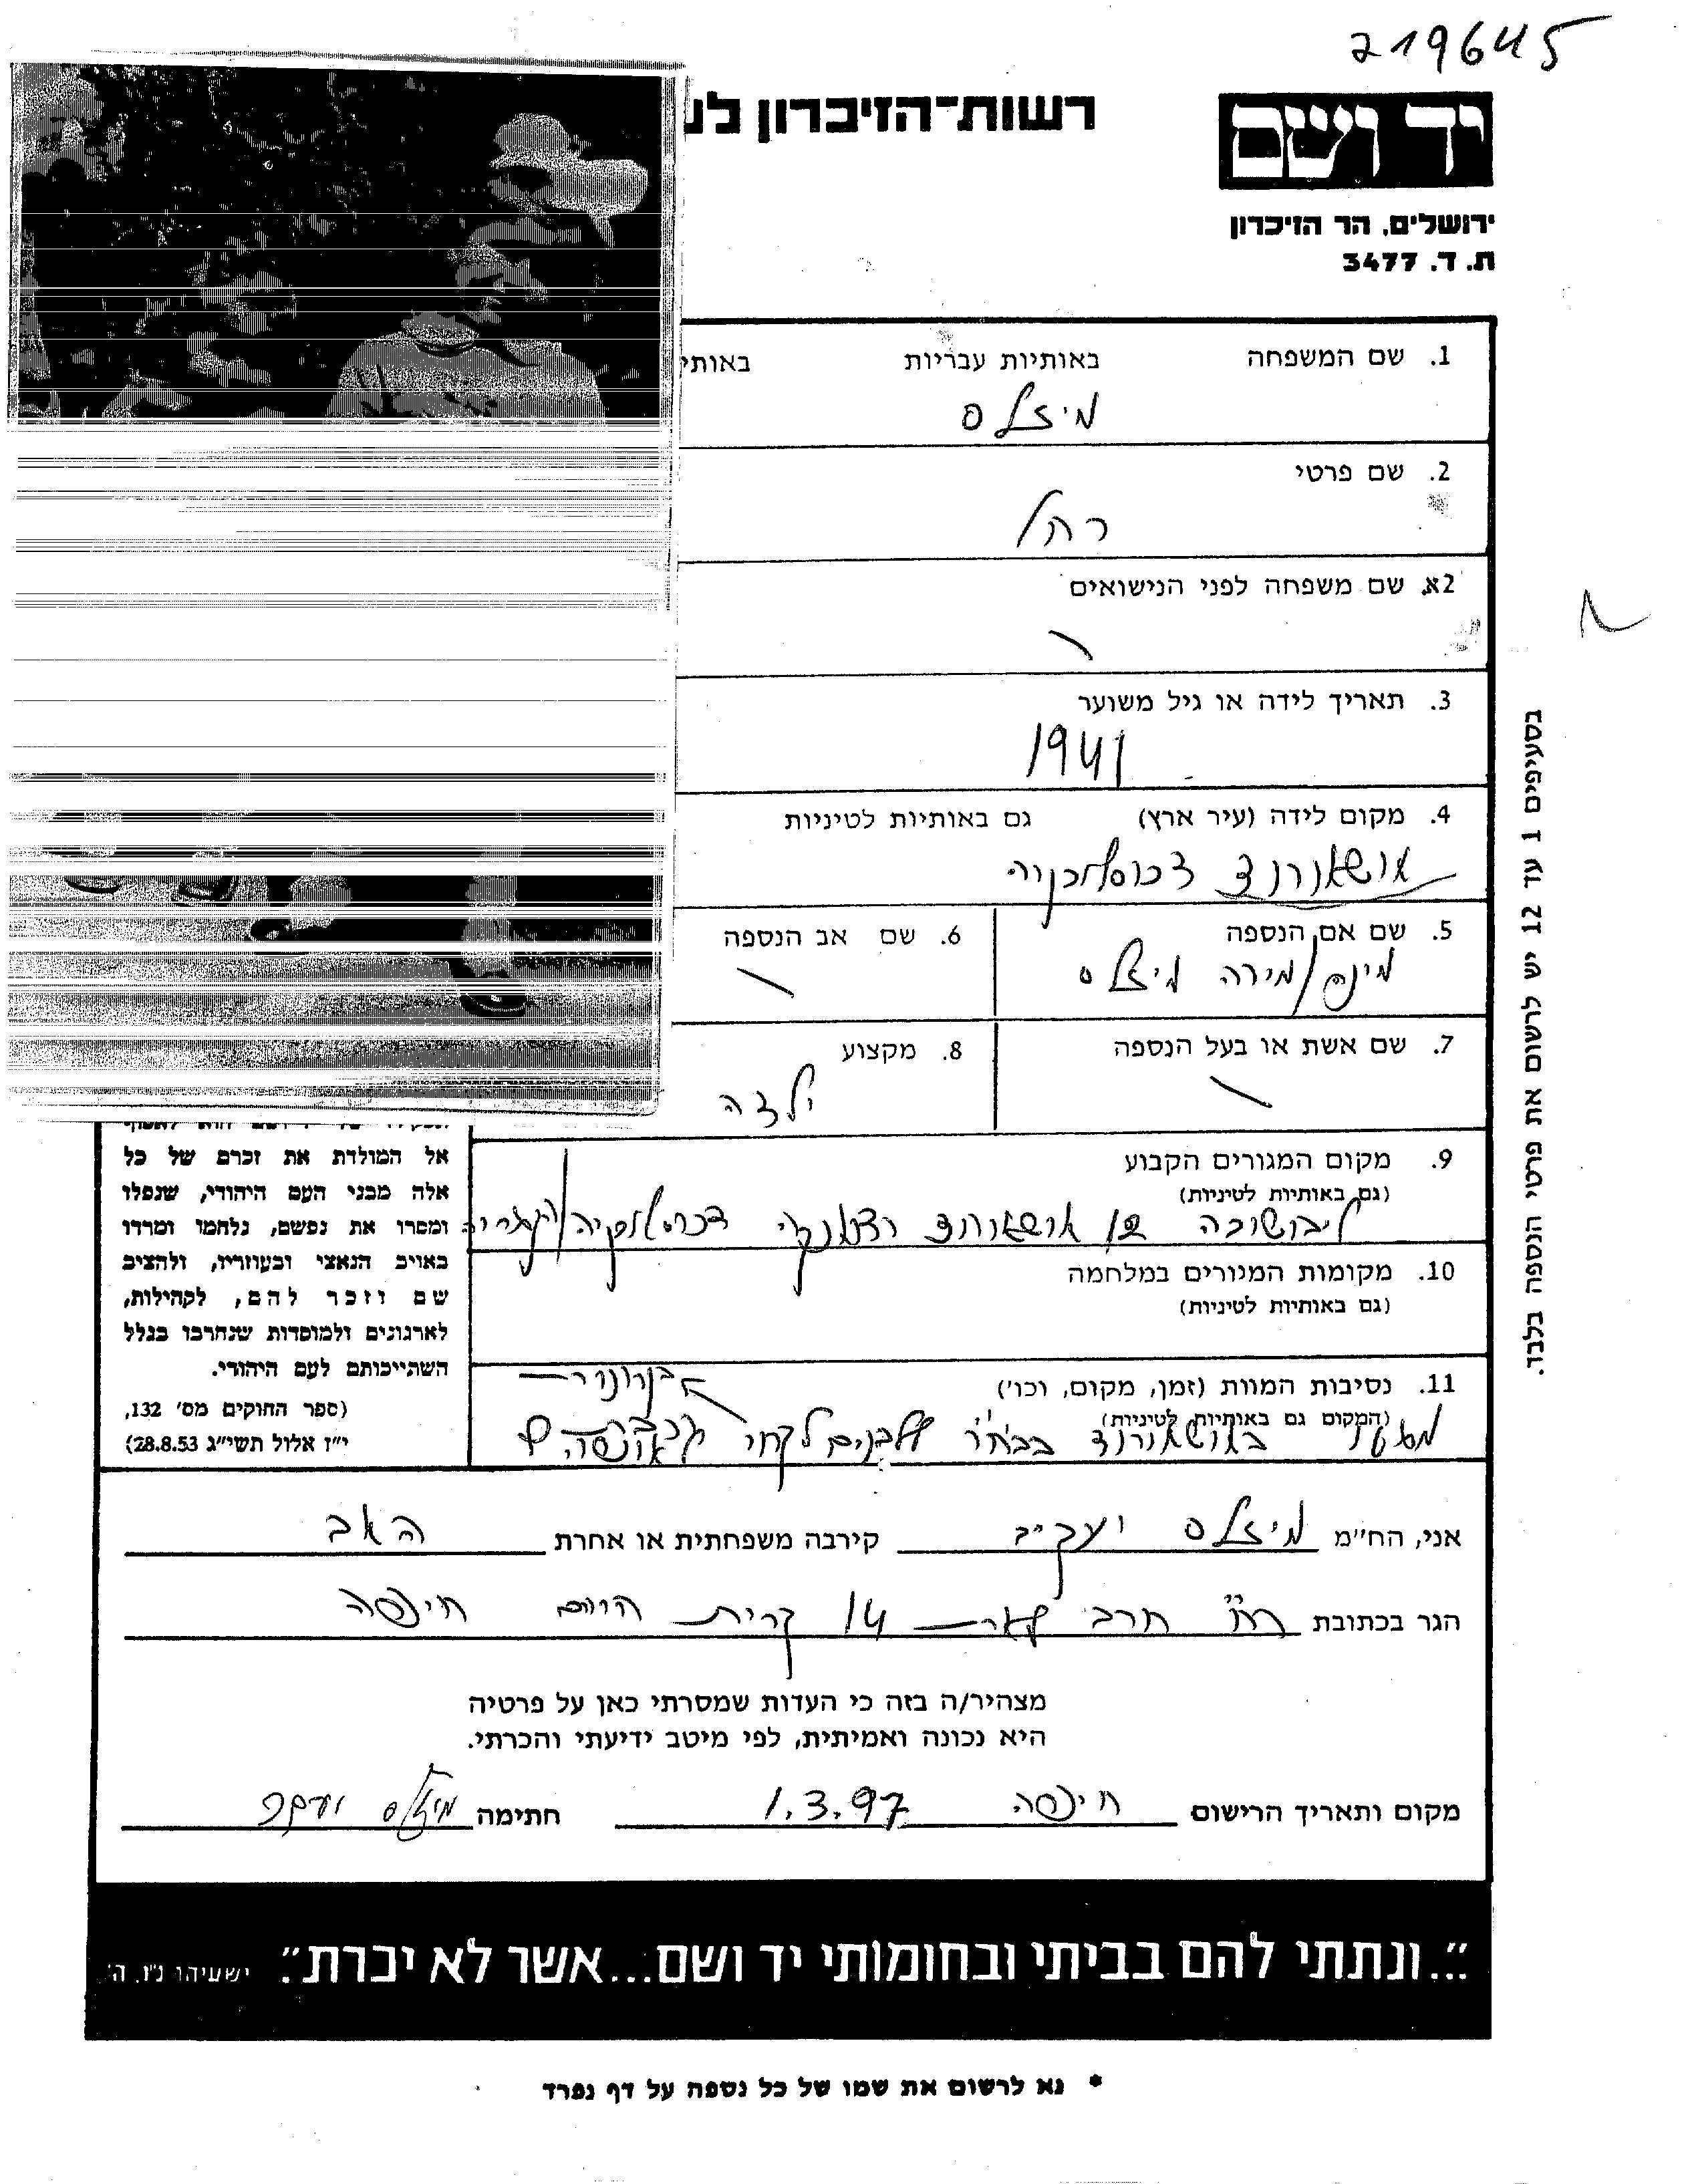 219645
יד ושם
רשות־הזיכרון לנ
ירושלים, הר הזיכרון
ת. ד. 3477
1. שם המשפחה באותיות עבריות באותי
מיזלס
2. שם פרטי
רחל
2א. שם משפחה לפני הנישואים
3. תאריך לידה או גיל משוער
1941
4. מקום לידה (עיר ארץ) גם באותיות לטיניות
5. שם אם הנספה
מירה מיזלס
6. שם אב הנספה
7. שם אשת או בעל הנספה
8. מקצוע
ילדה
9. מקום המגורים הקבוע
(גם באותיות לטיניות)
10. מקומות המגורים במלחמה
(גם באותיות לטיניות)
11. נסיבות המוות (זמן, מקום, וכו')
(המקום גם באותיות לטיניות)
אל המולדת את זכרם של כל
אלה מבני העם היהודי, שנפלו
ומסרו את נפשם, נלחמו ומרדו
באויב הנאצי ובעוזריו, ולהציב
שם וזכר להם, לקהילות,
לארגונים ולמוסדות שנחרבו בגלל
השתייכותם לעם היהודי.
(ספר החוקים מס' 132,
י"ז אלול תשי"ג 28.8.53)
אני, הח"מ מיזלס יעקב קירבה משפחתית או אחרת האב
הגר בכתובת רח' 14 קרית חיים חיפה
מצהיר/ה בזה כי העדות שמסרתי כאן על פרטיה
היא נכונה ואמיתית, לפי מיטב ידיעתי והכרתי.
מקום ותאריך הרישום חיפה 1.3.97 חתימה מיזלס יעקב
"...ונתתי להם בביתי ובחומותי יד ושם...אשר לא יכרת". ישעיהו נ"ו, ה'
* נא לרשום את שמו של כל נספה על דף נפרד
בסעיפים 1 עד 12 יש לרשום את פרטי הנספה בלבד.